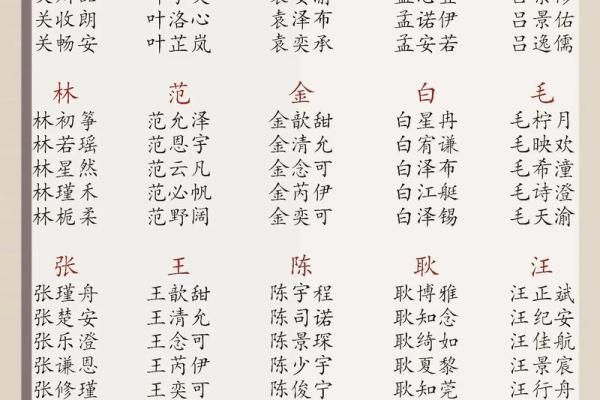 关收朗 叶洛心 袁泽布 孟诺伊 吕景佑
关畅安 叶芷岚 袁奕承 孟安若 吕逸儒
林 范 金 白 毛
林初筝 范允泽 金歆甜 白星冉 毛柠月
林若瑶 范恩宇 金清允 白宥谦 毛映欢
林星然 范云凡 金念可 白泽布 毛希潼
林瑾禾 范必帆 金芮伊 白江艇 毛诗澄
林栀柔 范野阔 金奕可 白泽锡 毛天渝
张 王 陈 耿 汪
张瑾舟 王歆甜 陈宇程 耿博雅 汪正斌
张楚安 王清允 陈司诺 耿知念 汪纪安
张乐澄 王念可 陈景琛 耿绮如 汪佳航
张谦恩 王芮伊 陈少宇 耿夏黎 汪景宸
张修瑾 王奕可 陈俊宁 耿知莞 汪行舟